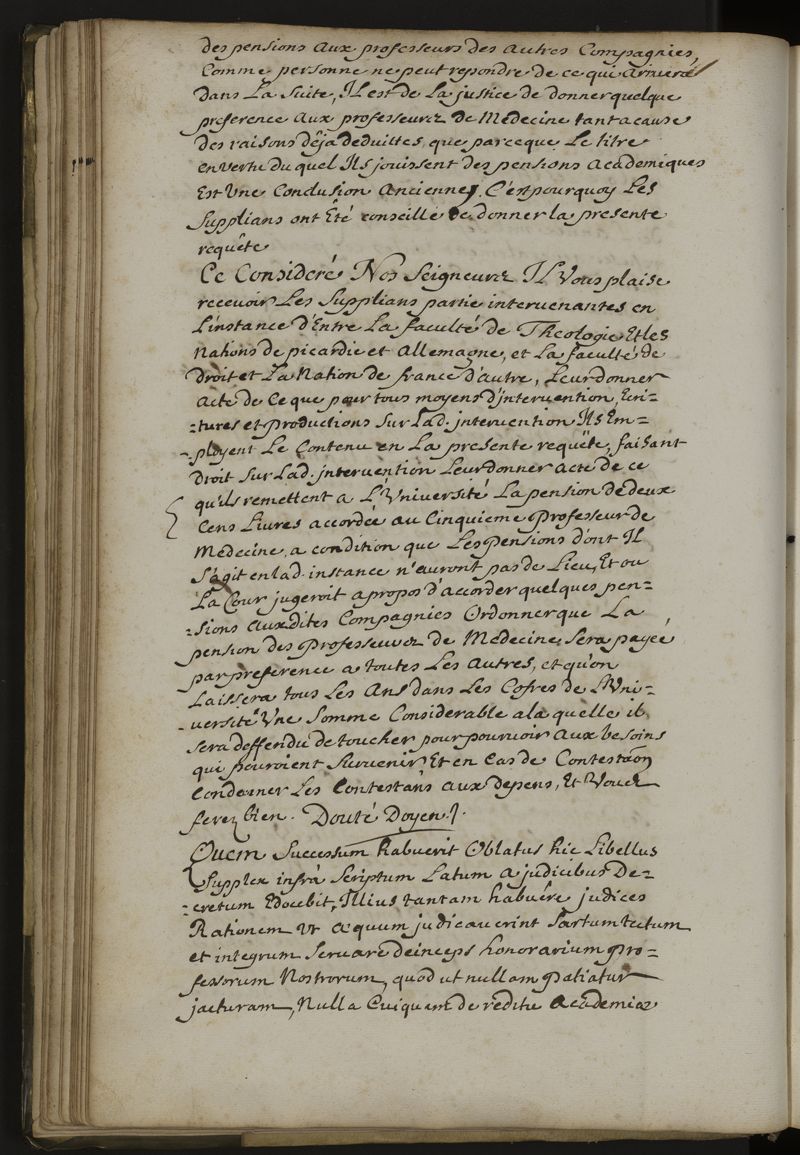 des pensions aux professeurs des autres Compagnies,
Comme personne ne peut repondre de ce qui arrivera
dans La Suite, Il est de La justice de donner quelque
preference aux professeurs de Medecine tant a cause
des raisons dêja deduittes, que parceque Le titre
en vertu du quel Ils jouissent des pensions academiques
Est Une Conclusion Ancienne, C'est pourquoy Les
Supplians ont Êté conseillé de donner la presente
requête
Ce Consideré Nos Seigneurs IL Vous plaise
recevoir Les Supplians partie intervenantes en
L'instance d'Entre La faculté de Theologie Et les
Nations de picardie et Allemagne, et La faculté de
Droit et La Nation de france d'autre, Leur donner
acte de Ce que pour tous moyens d'intervention, Ecri=
=tures et productions Sur Lad. intervention Ils Em=
=ployent Le Contenu en La presente requête, faisant
Droit sur Lad. intervention Leur donner acte de ce
qu'ils remettent a L'Université La pension de deux
Cens Livres accordée au Cinquieme Professeur de
Medecine, a condition que Les Pensions dont Il
S'agit en lad. instance n'auront pas de Lieu, Et ou
La Cour jugeroit apropos d'accorder quelques pen=
=sions auxdites Compagnies Ordonner que La
pension des Professeurs de Medecine, Sera payée
par preference a toutes Les autres, et qu'on
Laissera tous Les Ans dans Les Cofres de L'Uni=
=versité Une Somme Considerable a la quelle il
Sera deffendu de toucher pour pourvoir aux besoins
qui pouroient Survenir, Et en Cas de Contestãon
Condemner Les Contestans aux depens, Et Vous
ferez bien. Douté Doyen.
Quem Successum habuerit Oblatus hic Libellus
Supplex infrà Scriptum Latum a judicibus De=
=cretum Edocebit, Illius tantam habuêre judices
Rationem Vt æquum judicauerint Sartum tectum
et integrum Servare deinceps honorarium Pro=
fessorum Nostrorum, quod ut nullam Patiatur
jacturam, Nulla Cuiquam de reditu Academiæ